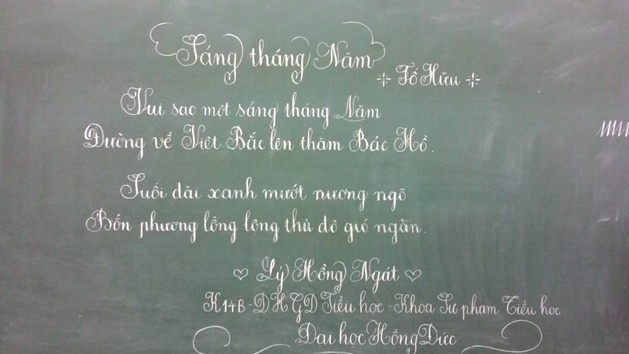 Sáng tháng Năm
÷ Tố Hữu ÷
Vui sao một sáng tháng Năm
Đường về Việt Bắc lên thăm Bác Hồ.
Suối dài xanh mướt nương ngô
Bốn phương lồng lộng thủ đô gió ngàn.
♡ Lý Hồng Ngát ♡
K14B - ĐHGD Tiểu học - Khoa Sư phạm Tiểu học
Đại học Hồng Đức